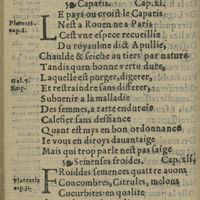 Caparis. Cap.xl.
LE pays ou croist le Caparis
Nest a Rouen ne a Paris
Cest vne espece recueillie
Du royaulme dict Apullie,
Chaulde & seiche au tiers par nature
Tandis quen bonne vertu dure,
Laquelle est purger, digerer,
Et restraindre sans differer,
Subuenir a la maladie
Des femmes, a ratte endurcie
Calefier sans deffiance
Quant est mys en bon ordonnance
Ie vous en diroys dauantaige
Mais qui trop parle nest pas saige
Semenses froides. Cap.xli.
FRoiddes semences quattre auons
Concombres, Citrules, melons
Cucurbites: en qualite
Platearii.
cap.
Gal.7.
simp.
Platearii